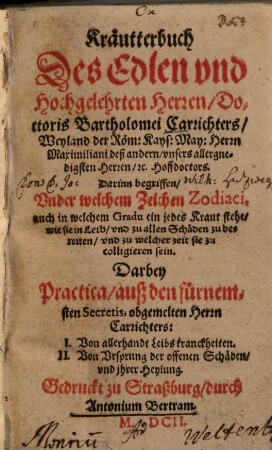 Kräutterbuch
Des Edlen vnd
Hochgelehrten Herren/Do-
ctoris Bartholomei Carrichters/
Weyland der Röm: Kays: May: Herrn
Maximiliani deß andern/vnsers allergne-
digsten Herren/ꝛc. Hoffdoctors.
Darinn begriffen/
Vnder welchem Zeichen Zodiaci,
auch in welchem Gradu ein jedes Kraut stehe/
wie sie in Leib/vnd zu allen Schäden zu be-
reiten/vnd zu welcher zeit sie zu
colligieren sein.
Darbey
Practica/auß den fürnem-
sten Secretis obgemelten Herrn
Carrichters:
I. Von allerhandt Leibs kranckheiten.
II. Von Vrsprung der offenen Schäden/
vnd jhrer Heylung.
Gedruckt zu Straßburg/durch
Antonium Bertram.
M. DCII.